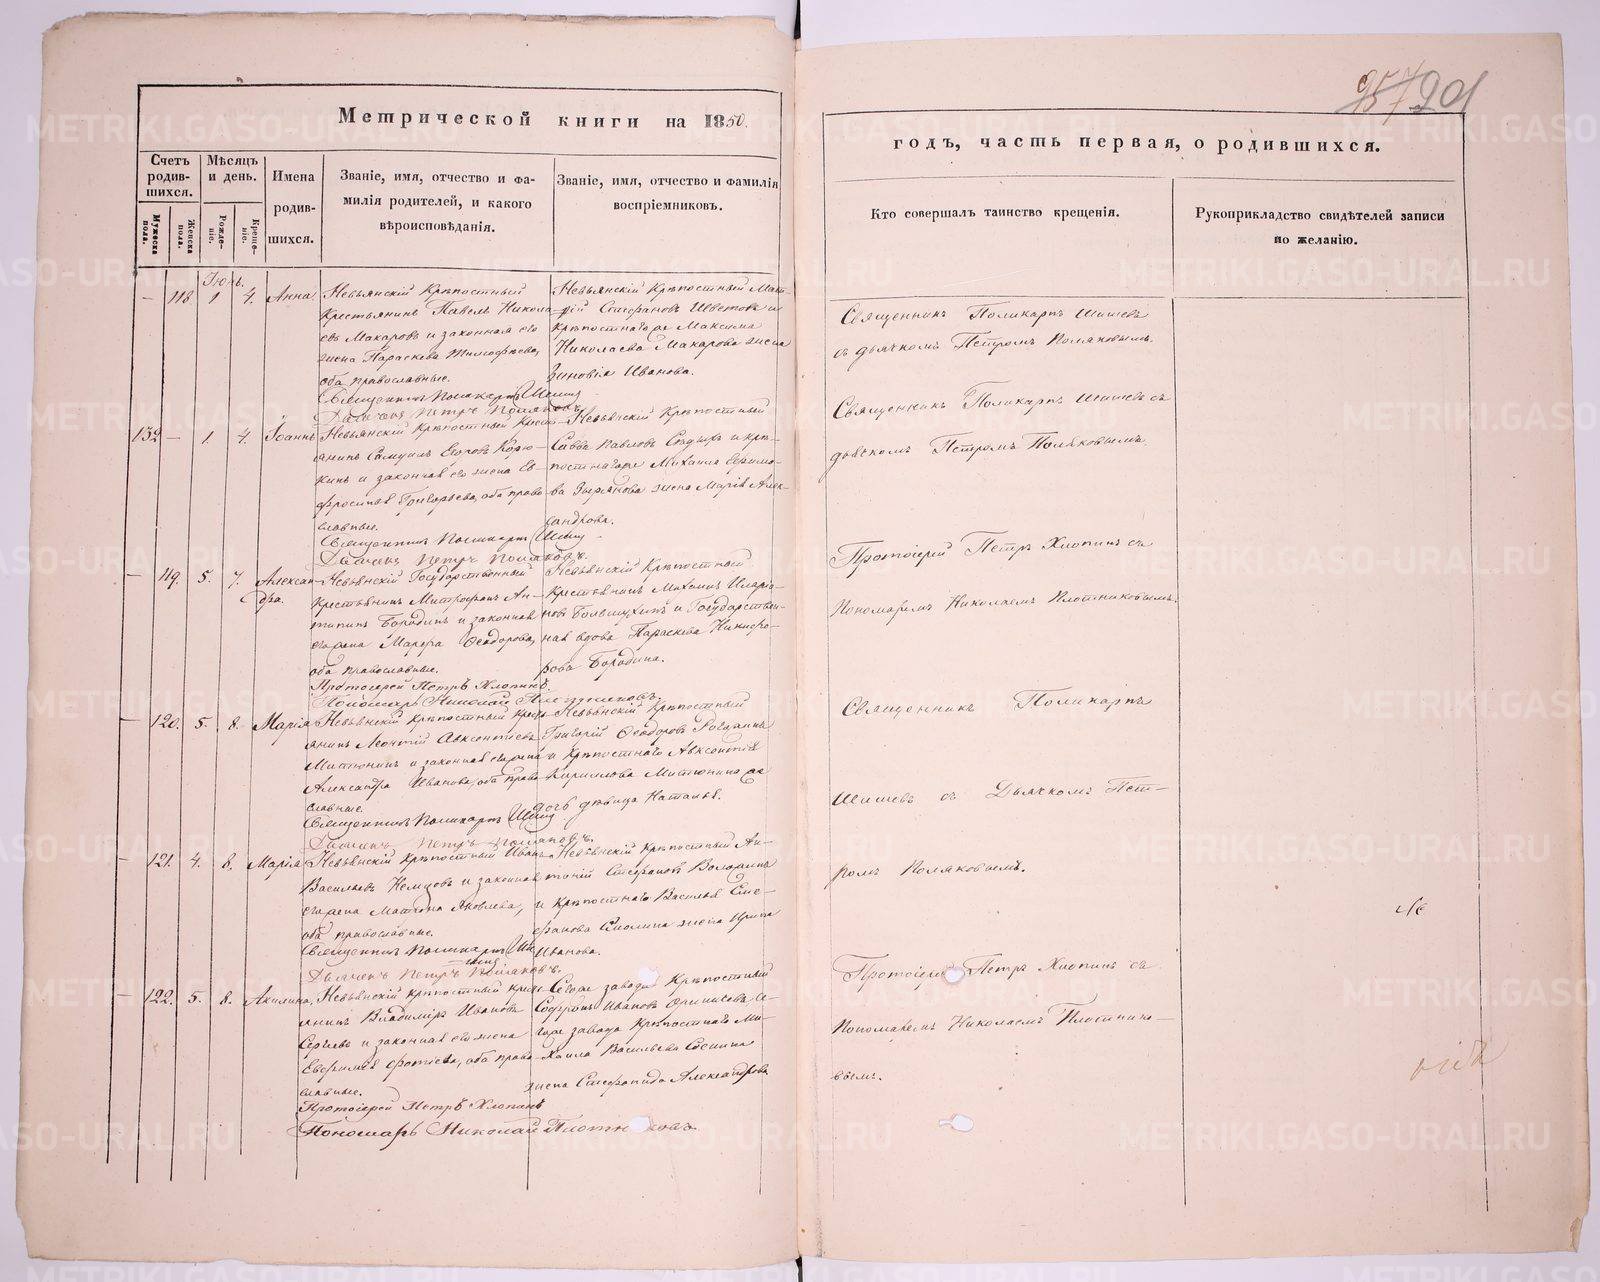 Метрической книги на 1850.
Счетъ родив-шихся.
Мѣсяцъ и день.
Имена родив-шихся.
Званіе, имя, отчество и фа-
милія родителей, и какого
вѣроисповѣданія.
Званіе, имя, отчество и фамилія
воспріемниковъ.
Мужеска пола.
Женска пола.
Рожде-ніе.
Креще-ніе.
Іюнь.
— 118 1 4. Анна.
Невьянскій Крѣпостный
Крестьянинъ Павелъ Никола-
евъ Макаровъ и законная его
жена Параскева Тимофѣева,
оба православные.
Священникъ Поликарпъ Шишевъ
Дьячекъ Петръ Поляковъ
Невьянскій Крѣпостный
Стефановъ Цвѣтовъ и
крѣпостнаго Максима
Николаева Макарова жена
Зиновія Иванова.
132 — 1. 4. Іоаннъ
Невьянскій Крѣпостный Крест-
янинъ Самуилъ Егоровъ
и законная его жена Ев-
фросинія Григорьева, оба право-
славные.
Священникъ Поликарпъ Шишевъ
Дьячекъ Петръ Поляковъ.
Невьянскій Крѣпостный
Савва Павловъ и крѣ-
постнаго Михаила
Зырянова жена Марія Алек-
сандрова.
— 119. 5. 7. Алексан-
дра.
Невьянскій Государственный
Крестьянинъ Митрофанъ Ан-
типинъ Бородинъ и законная
его жена Марфа Ѳеодорова,
оба православные.
Протоіерей Петръ Хлопинъ.
Пономарь Николай Плотниковъ.
Невьянскій Крѣпостный
Крестьянинъ Михаилъ Иларіо-
новъ и Государствен-
ная вдова Параскева Никифо-
рова Бородина.
— 120. 5. 8. Марія
Невьянскій Крѣпостный Крест-
янинъ Леонтій Авксентіевъ
Митюнинъ и законная его жена
Александра Иванова, оба право-
славные.
Священникъ Поликарпъ Шишевъ
Дьячекъ Петръ Поляковъ.
Невьянскій Крѣпостный
Григорій Ѳеодоровъ
и Крѣпостнаго Авксентія
Кириллова Митюнина
дочь дѣвица Наталья.
— 121. 4. 8. Марія
Невьянскій Крѣпостный Иванъ
Васильевъ Немцовъ и законная
его жена Матрона Яковлева,
оба православные.
Священникъ Поликарпъ Шишевъ
Дьячекъ Петръ Поляковъ.
Невьянскій Крѣпостный Ан-
тоній Стефановъ
и Крѣпостнаго Василья Сте-
фанова жена Ирина
Иванова.
— 122. 5. 8. Акилина,
Невьянскій крѣпостный крест-
янинъ Владимиръ Ивановъ
Сергѣевъ и законная его жена
Евфимія Фотіева, оба право-
славные.
Протоіерей Петръ Хлопинъ
Пономарь Николай Плотниковъ
Сегоже завода Крѣпостный
Софронъ Ивановъ и се-
гоже завода Крѣпостнаго Ми-
хаила Васильева
жена Стефанида Александрова
годъ, часть первая, о родившихся.
Кто совершалъ таинство крещенія.
Рукоприкладство свидѣтелей записи
по желанію.
Священникъ Поликарпъ Шишевъ
съ дьячкомъ Петромъ Поляковымъ.
Священникъ Поликарпъ Шишевъ съ
дьячкомъ Петромъ Поляковымъ.
Протоіерей Петръ Хлопинъ съ
Пономаремъ Николаемъ Плотниковымъ.
Священникъ Поликарпъ
Шишевъ съ Дьячкомъ Пет-
ромъ Поляковымъ.
Протоіерей Петръ Хлопинъ съ
Пономаремъ Николаемъ Плотнико-
вымъ.
METRIKI.GASO-URAL.RU